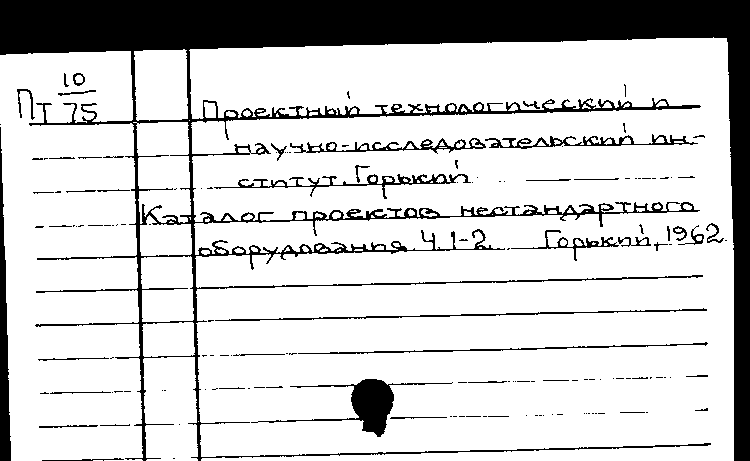 Пт 10/75
Проектный технологический и
научно-исследовательский ин-
ститут. Горький
Каталог проектов нестандартного
оборудования. Ч. 1-2. Горький, 1962.